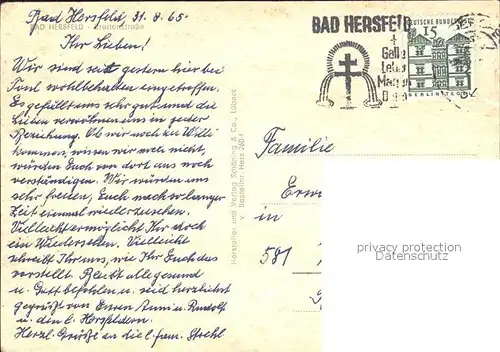 Bad Hersfeld, 31.8.65.
BAD HERSFELD - Breitenstraße
Ihr Lieben!
Wir sind seit gestern hier bei
Toni wohlbehalten eingetroffen.
Es gefällt uns sehr gut und die
Lieben verwöhnen uns in jeder
Beziehung. Ob wir noch zu Willi
kommen, wissen wir noch nicht,
würden Euch von dort aus noch
verständigen. Wir würden uns
sehr freuen, Euch nach so langer
Zeit einmal wiederzusehen.
Vielleicht ermöglicht Ihr doch
ein Wiedersehen. Vielleicht
schreibt Ihr uns, wie Ihr Euch das
vorstellt. Bleibt alle gesund
u. Gott befohlen u. seid herzlichst
gegrüßt von Euren Anni u. Rudolf
u. den l. Hersfeldern.
Herzl. Grüße an die l. Fam. Strehl
Hersteller und Verlag Schöning & Co., Lübeck
v. Bestellnr. Hers 2604
BAD HERSFELD
Galle
Leber
Magen
Darm
DEUTSCHE BUNDESPOST
15
BERLIN TEGEL
Familie
Erw
in
581
privacy protection
Datenschutz